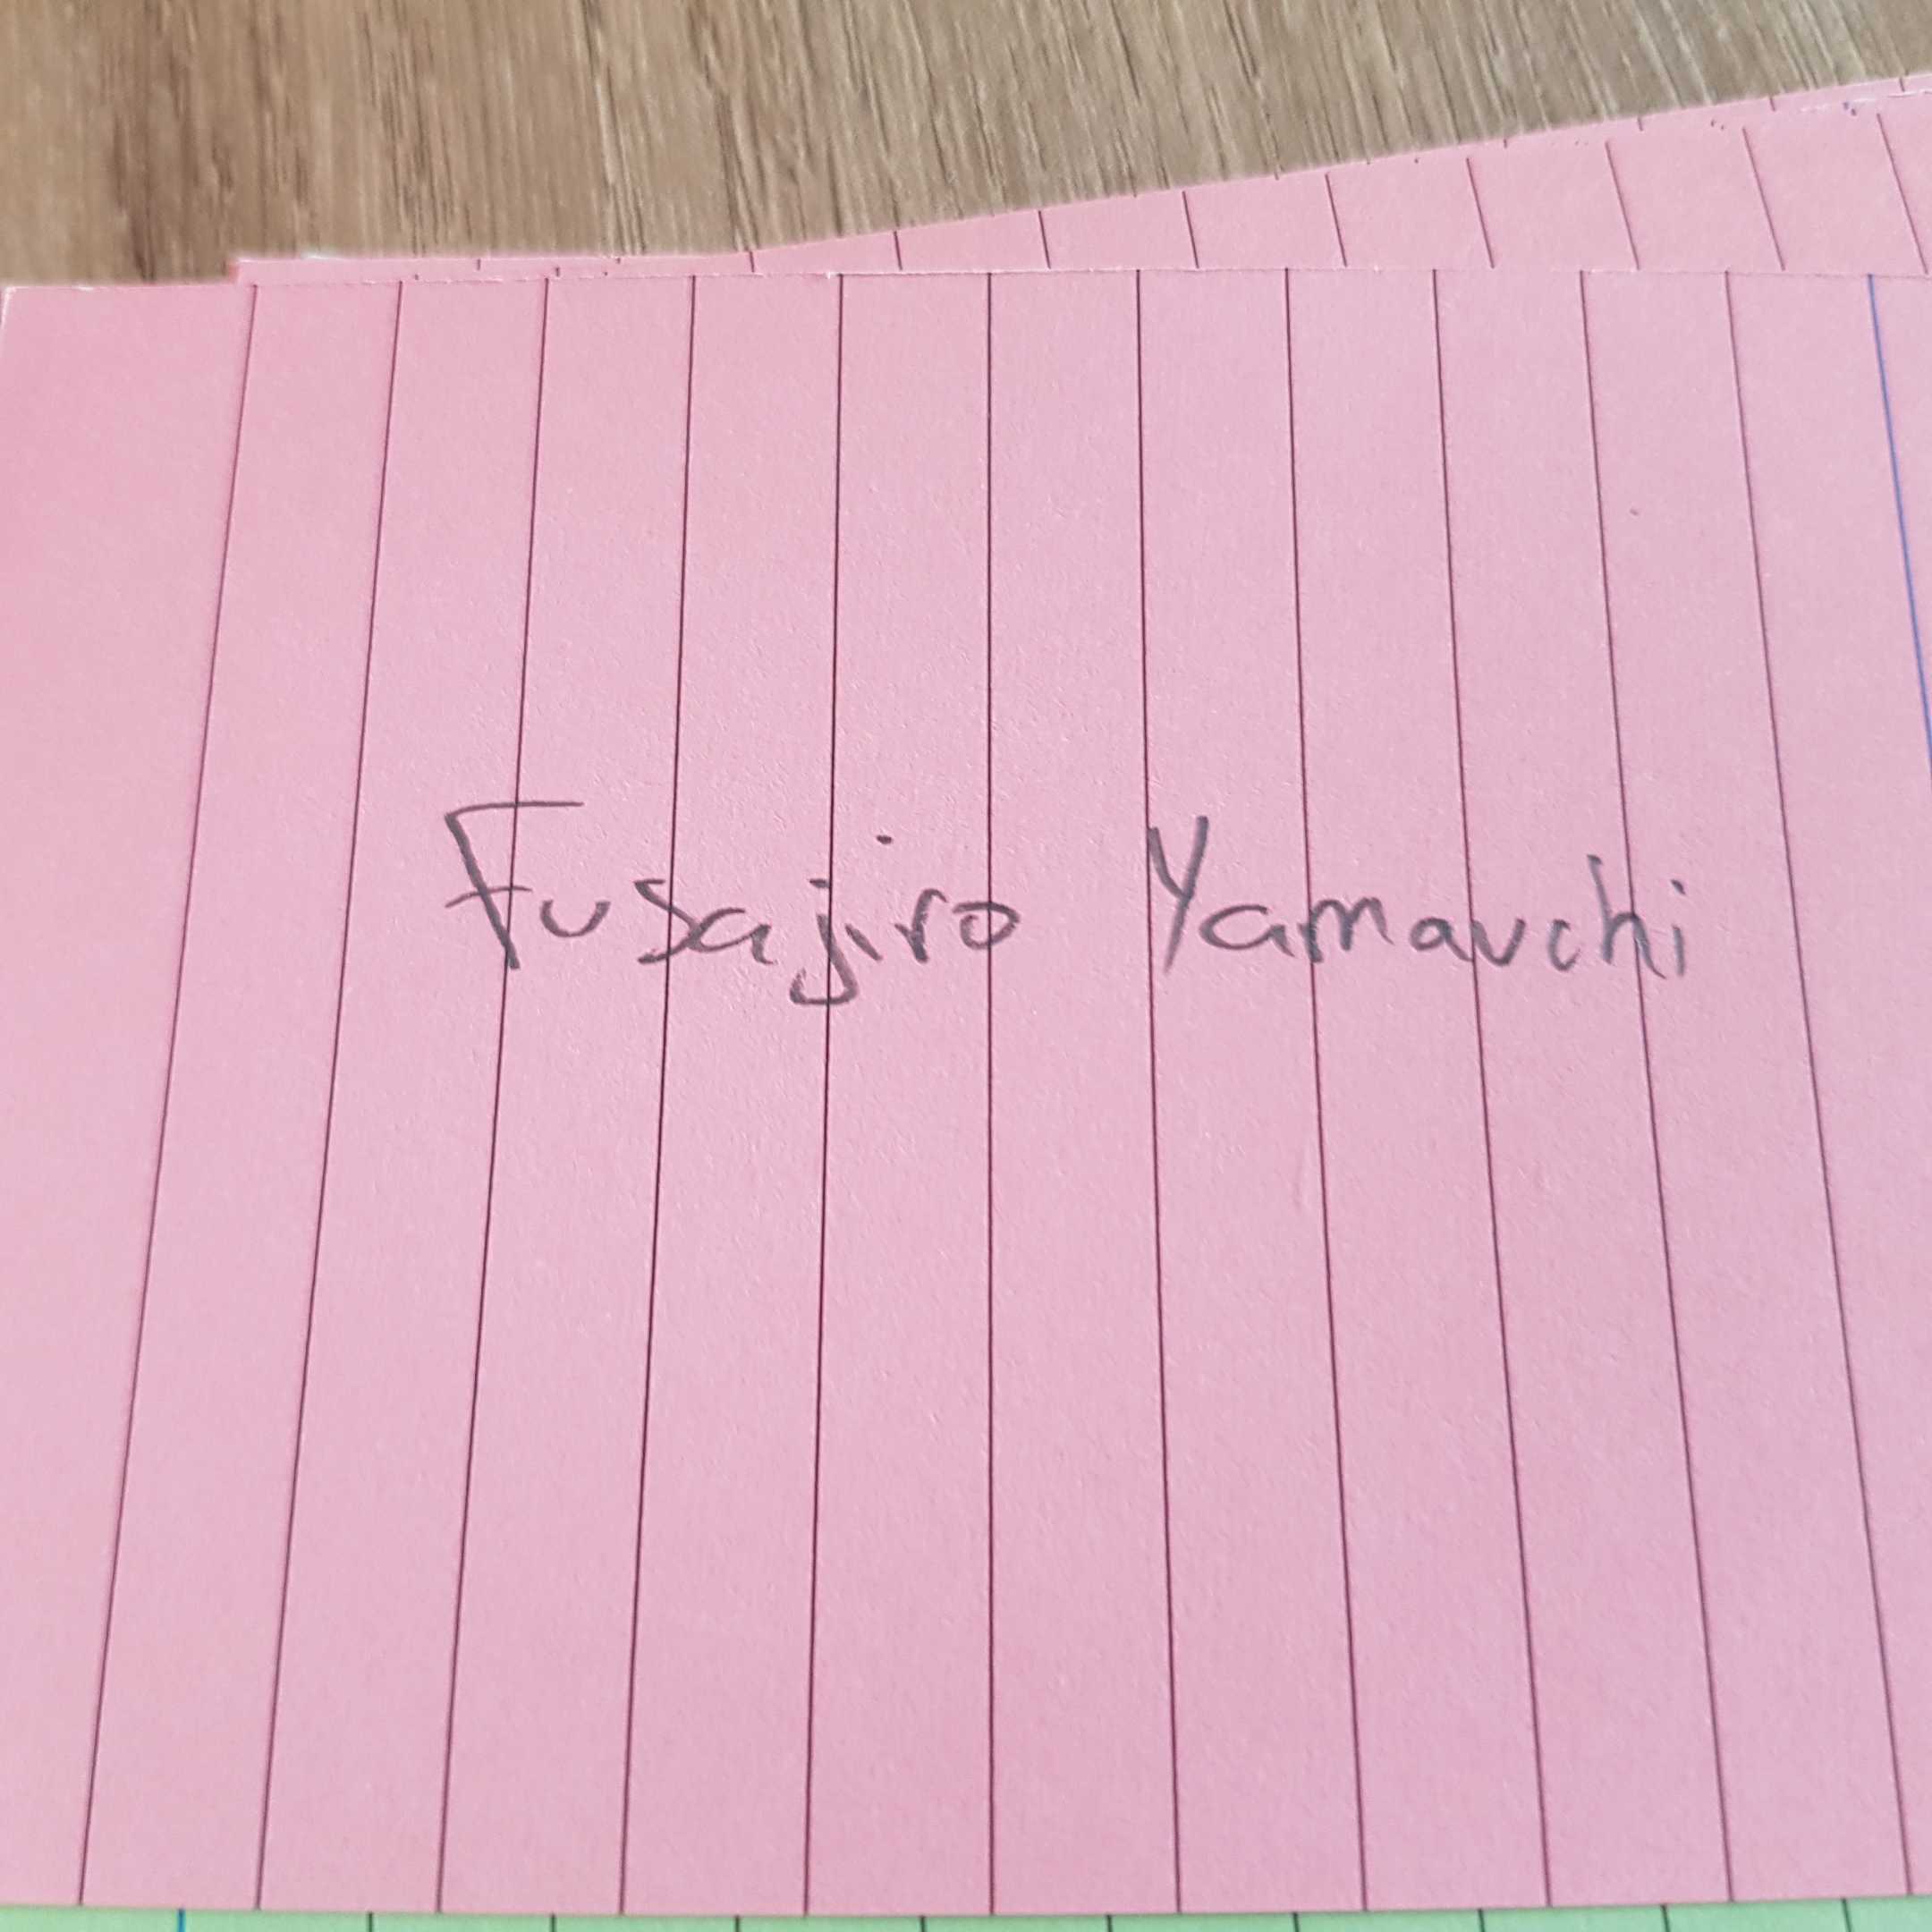 Fusajiro Yamauchi